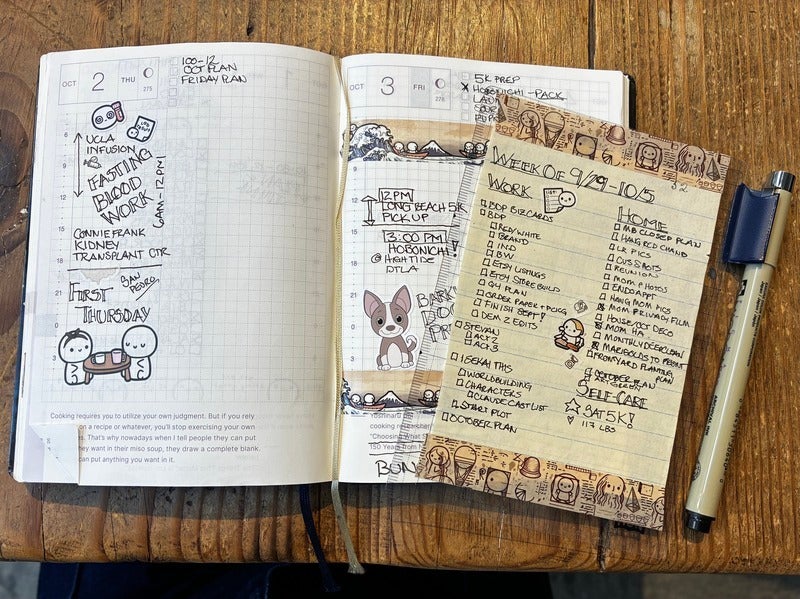 OCT 2 THU
275
100-12
OCT PLAN
FRIDAY PLAN
6
UCLA
INFUSION
FASTING
BLOOD
WORK
6AM-12PM
CONNIE FRANK
KIDNEY
TRANSPLANT CTR
FIRST
THURSDAY
SAN
PEDRO
Cooking requires you to utilize your own judgment. But if you rely
n a recipe or whatever, you'll stop exercising your own
es. That's why nowadays when I tell people they can put
they want in their miso soup, they draw a complete blank.
can put anything you want in it.
OCT 3 FRI
276
5K PREP
X HOBONICHI-PACK
LAU
PUP
12PM
LONG BEACH 5K
PICK UP
3:00 PM
HOBONICHI!
@ HIGHTIDE
DTLA
BARK
DO
PR
Yoshiharu
cooking researcher
"Choosing What
150 Years from
BON
WEEK OF 9/29-10/5
WORK
BDP BIZ CARDS
BDP
RED/WHITE
BRAND
IND
BW
ETSY LISTINGS
ETSY STORE BUILD
Q4 PLAN
ORDER PAPER + PCKG
FINISH SEPT!
DEM 2 EDITS
STEVIAN
ACT 2
ACT 3
ISEKAI THIS
WORLDBUILDING
CHARACTERS
CLAUDE CAST LIST
START PLOT
OCTOBER PLAN
HOME
MB CLOSED PLAN
HANG RCD CHAND
LR PICS
CUSS POTS
REUNION
MOM PHOTOS
ENDO APPT
HANG MOM PICS
MOM PRIVACY FILM
HOUSE OCT DECO
MOM HA
MONTHLY DEEP CLEAN
MARIGOLDS TO FRONT
FRONTYARD PLANTING
PLAN
OCTOBER PLAN
SELF-CARE
SAT 5K!
117 LBS